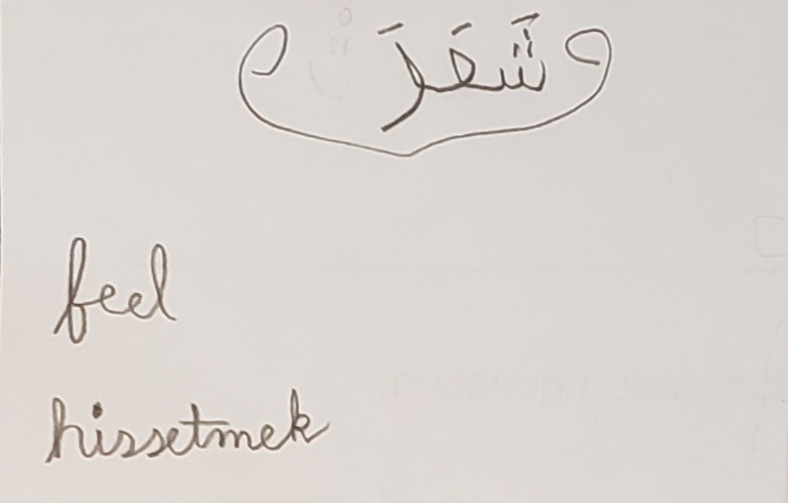 شَعَرَ
feel
hissetmek